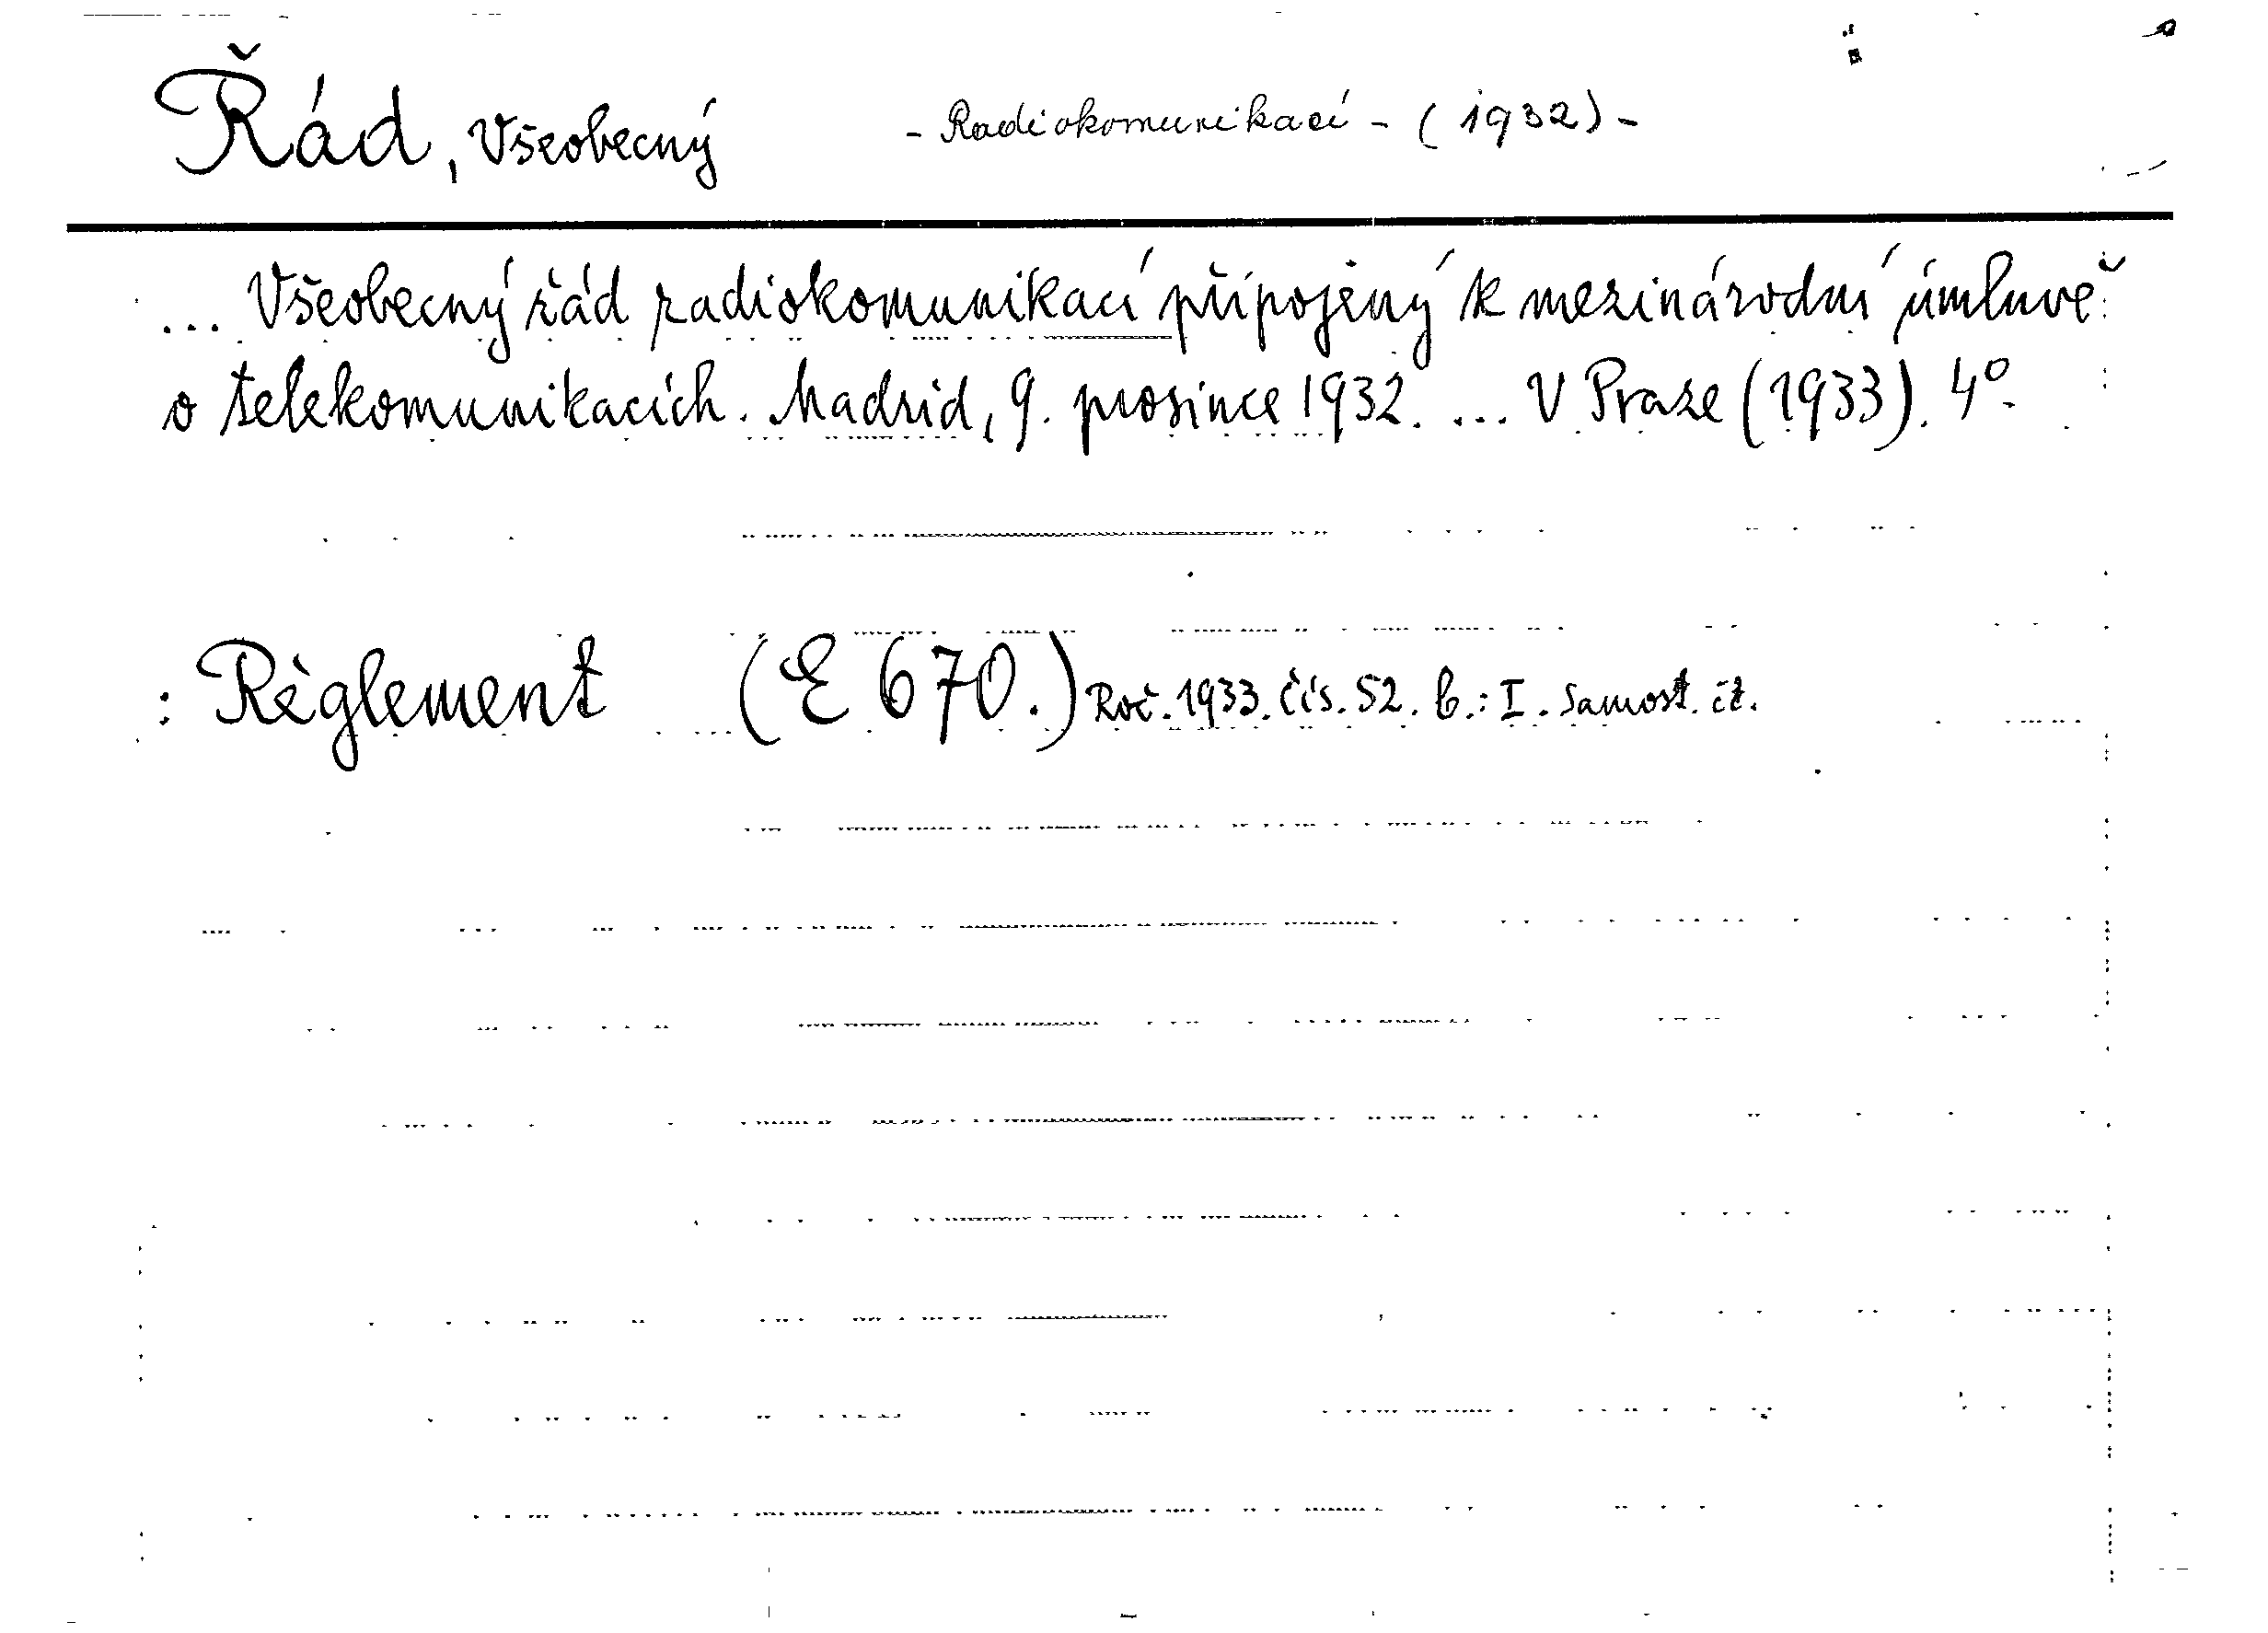 Řád, Všeobecný - Radiokomunikací - (1932) -
... Všeobecný řád radiokomunikací připojený k mezinárodní úmluvě
o telekomunikacích. Madrid, 9. prosince 1932. ... V Praze (1933). 4°.
: Règlement (E 670.) Roč. 1933. čís. 52. b.: I. Samost. čt.